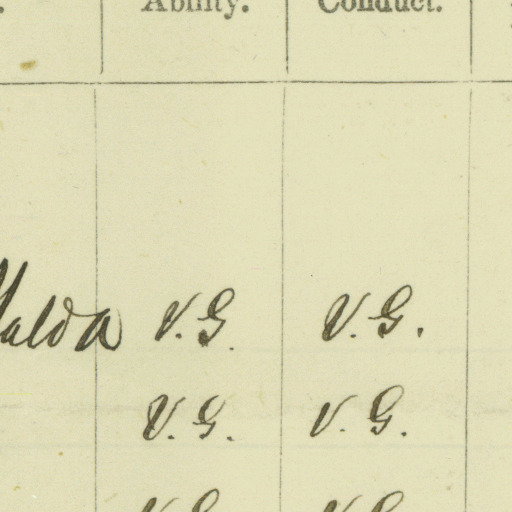 Ability. Conduct.
V.G. V.G.
V.G. V.G.
V.G. V.G.